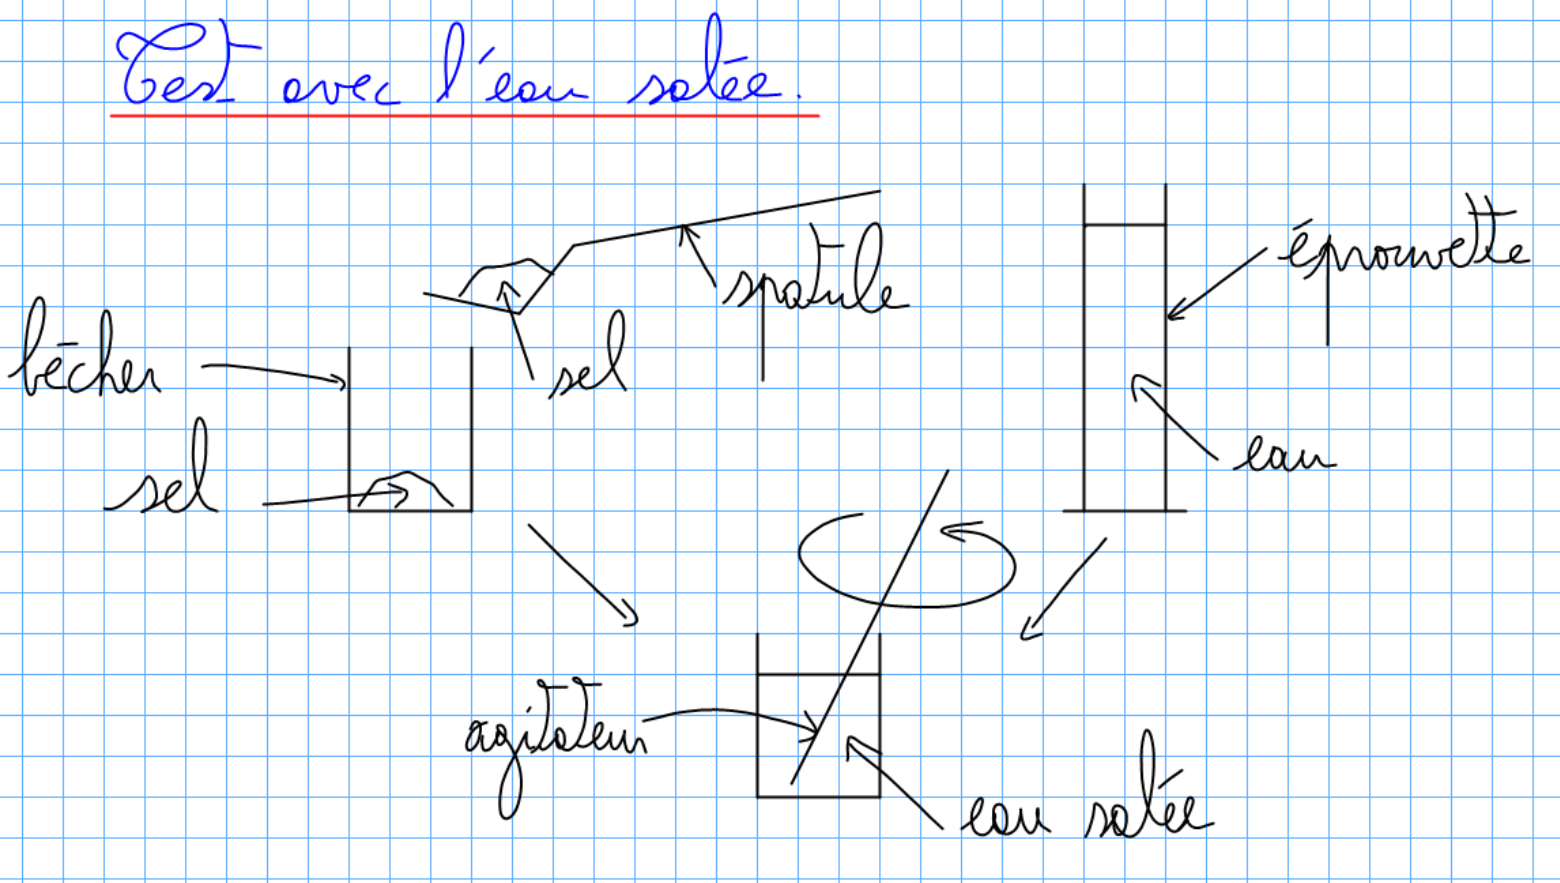 Test avec l'eau salée.
spatule
éprouvette
bécher
sel
sel
eau
agitateur
eau salée